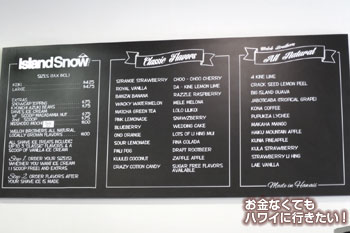 Island Snow
SIZES
KEIKI
LARGE
ADD
SNOWCAP TOPPING
KYUNG'S AZUKI BEANS
ICE CREAM
SCOOP MACADAMIA NUT
ALL NATURAL
LOCALLY GROWN FLAVORS
ALL SHAVE ICE INCLUDES
UP TO 3 CLASSIC FLAVORS & A
SCOOP OF VANILLA ICE CREAM
Step 1. ORDER YOUR SIZE(S)
WHETHER YOU WANT ICE CREAM
(1 SCOOP FREE) AND EXTRAS.
Step 2. ORDER FLAVORS AFTER
YOUR SHAVE ICE IS MADE
Classic Flavors
STRANGE STRAWBERRY
ROYAL VANILLA
BANZAI BANANA
WACKY WATERMELON
MATCHA GREEN TEA
PINK LEMONADE
BLUEBERRY
ONO ORANGE
SOUR LEMON
PALI FOG
KUULEI COCONUT
CRAZY COTTON CANDY
CHOO - CHOO CHERRY
DA - KINE LEMON LIME
RAZZLE RASPBERRY
MELE MELONA
LOLO LUIKO
SNOWZBERRY
WEDDING CAKE
LOTS OF LI HING MUI
PINA COLADA
DRAFT ROOTBEER
ZAFFLE APPLE
SUGAR FREE FLAVORS
AVAILABLE
All Natural
D KINE LIME
CRACK SEED LEMON PEEL
BIG ISLAND GUAVA
JABOTICABA (TROPICAL GRAPE)
KONA COFFEE
PUPUKEA LYCHEE
MAKAHA MANGO
HAIKU MOUNTAIN APPLE
KUNIA PINEAPPLE
KULA STRAWBERRY
STRAWBERRY LI HING
LAIE VANILLA
Made in Hawaii
お金なくても
ハワイに行きたい!